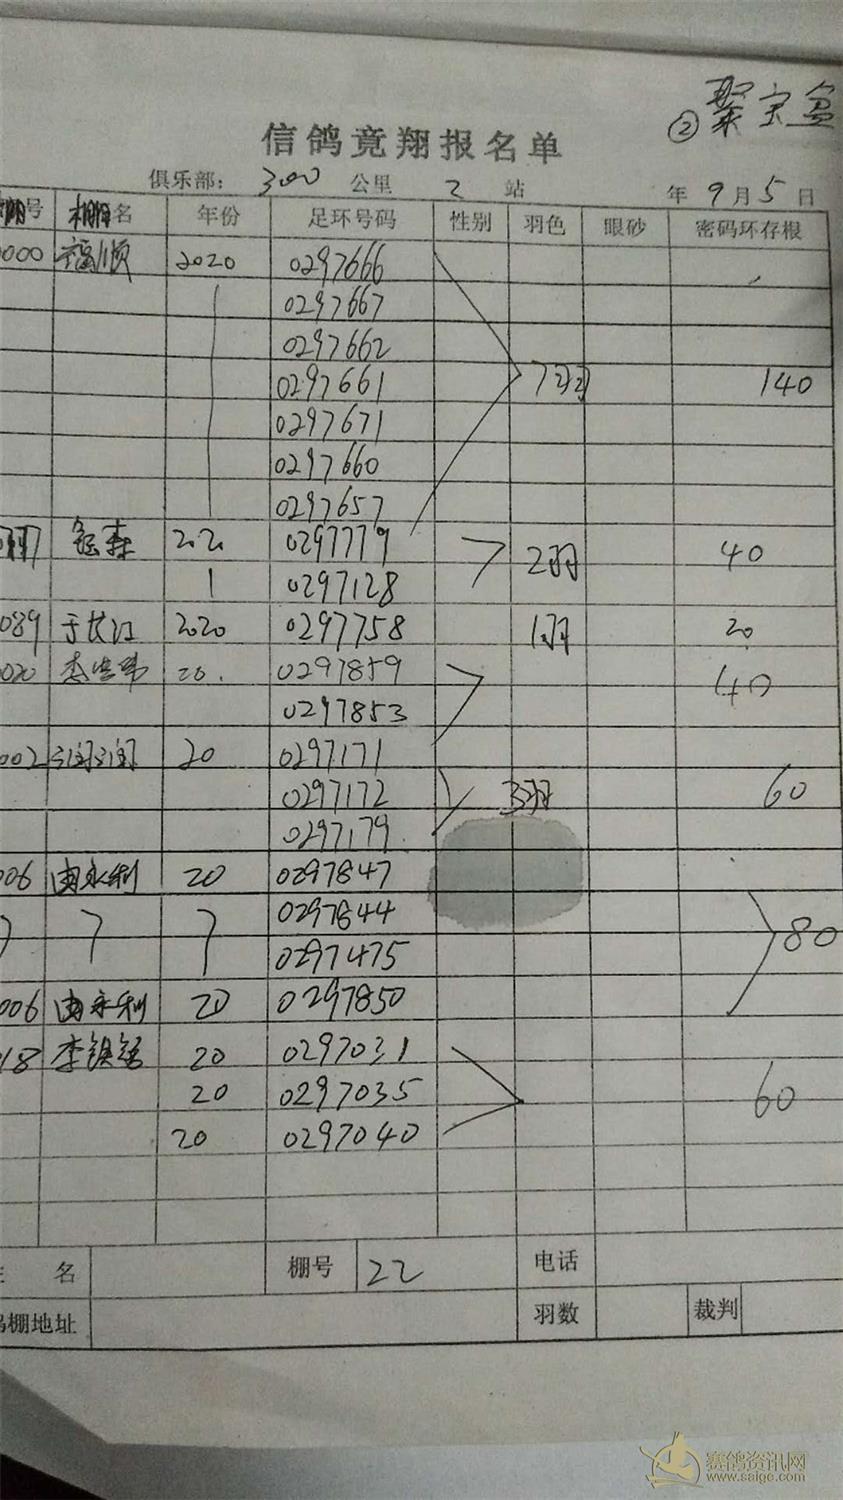 ② 聚宝盆
信鸽竟翔报名单
俱乐部： 300 公里 2 站 年 9 月 5 日
棚号 棚名 年份 足环号码 性别 羽色 眼砂 密码环存根
0000 福顺 2020 0297666
0297667
0297662
0297661 7羽 140
0297671
0297660
0297657
钰森 2020 0297779 2羽 40
0297128
089 于长江 2020 0297758 1羽 20
020 20. 0297859 40
0297853
002 润润 20 0297171
0297172 3羽 60
0297179
006 由永利 20 0297847
0297844 80
0297475
006 由永利 20 0297850
018 李镇铭 20 0297031
20 0297035 60
20 0297040
名 棚号 22 电话
鸽棚地址 羽数 裁判
赛鸽资讯网
www.saige.com